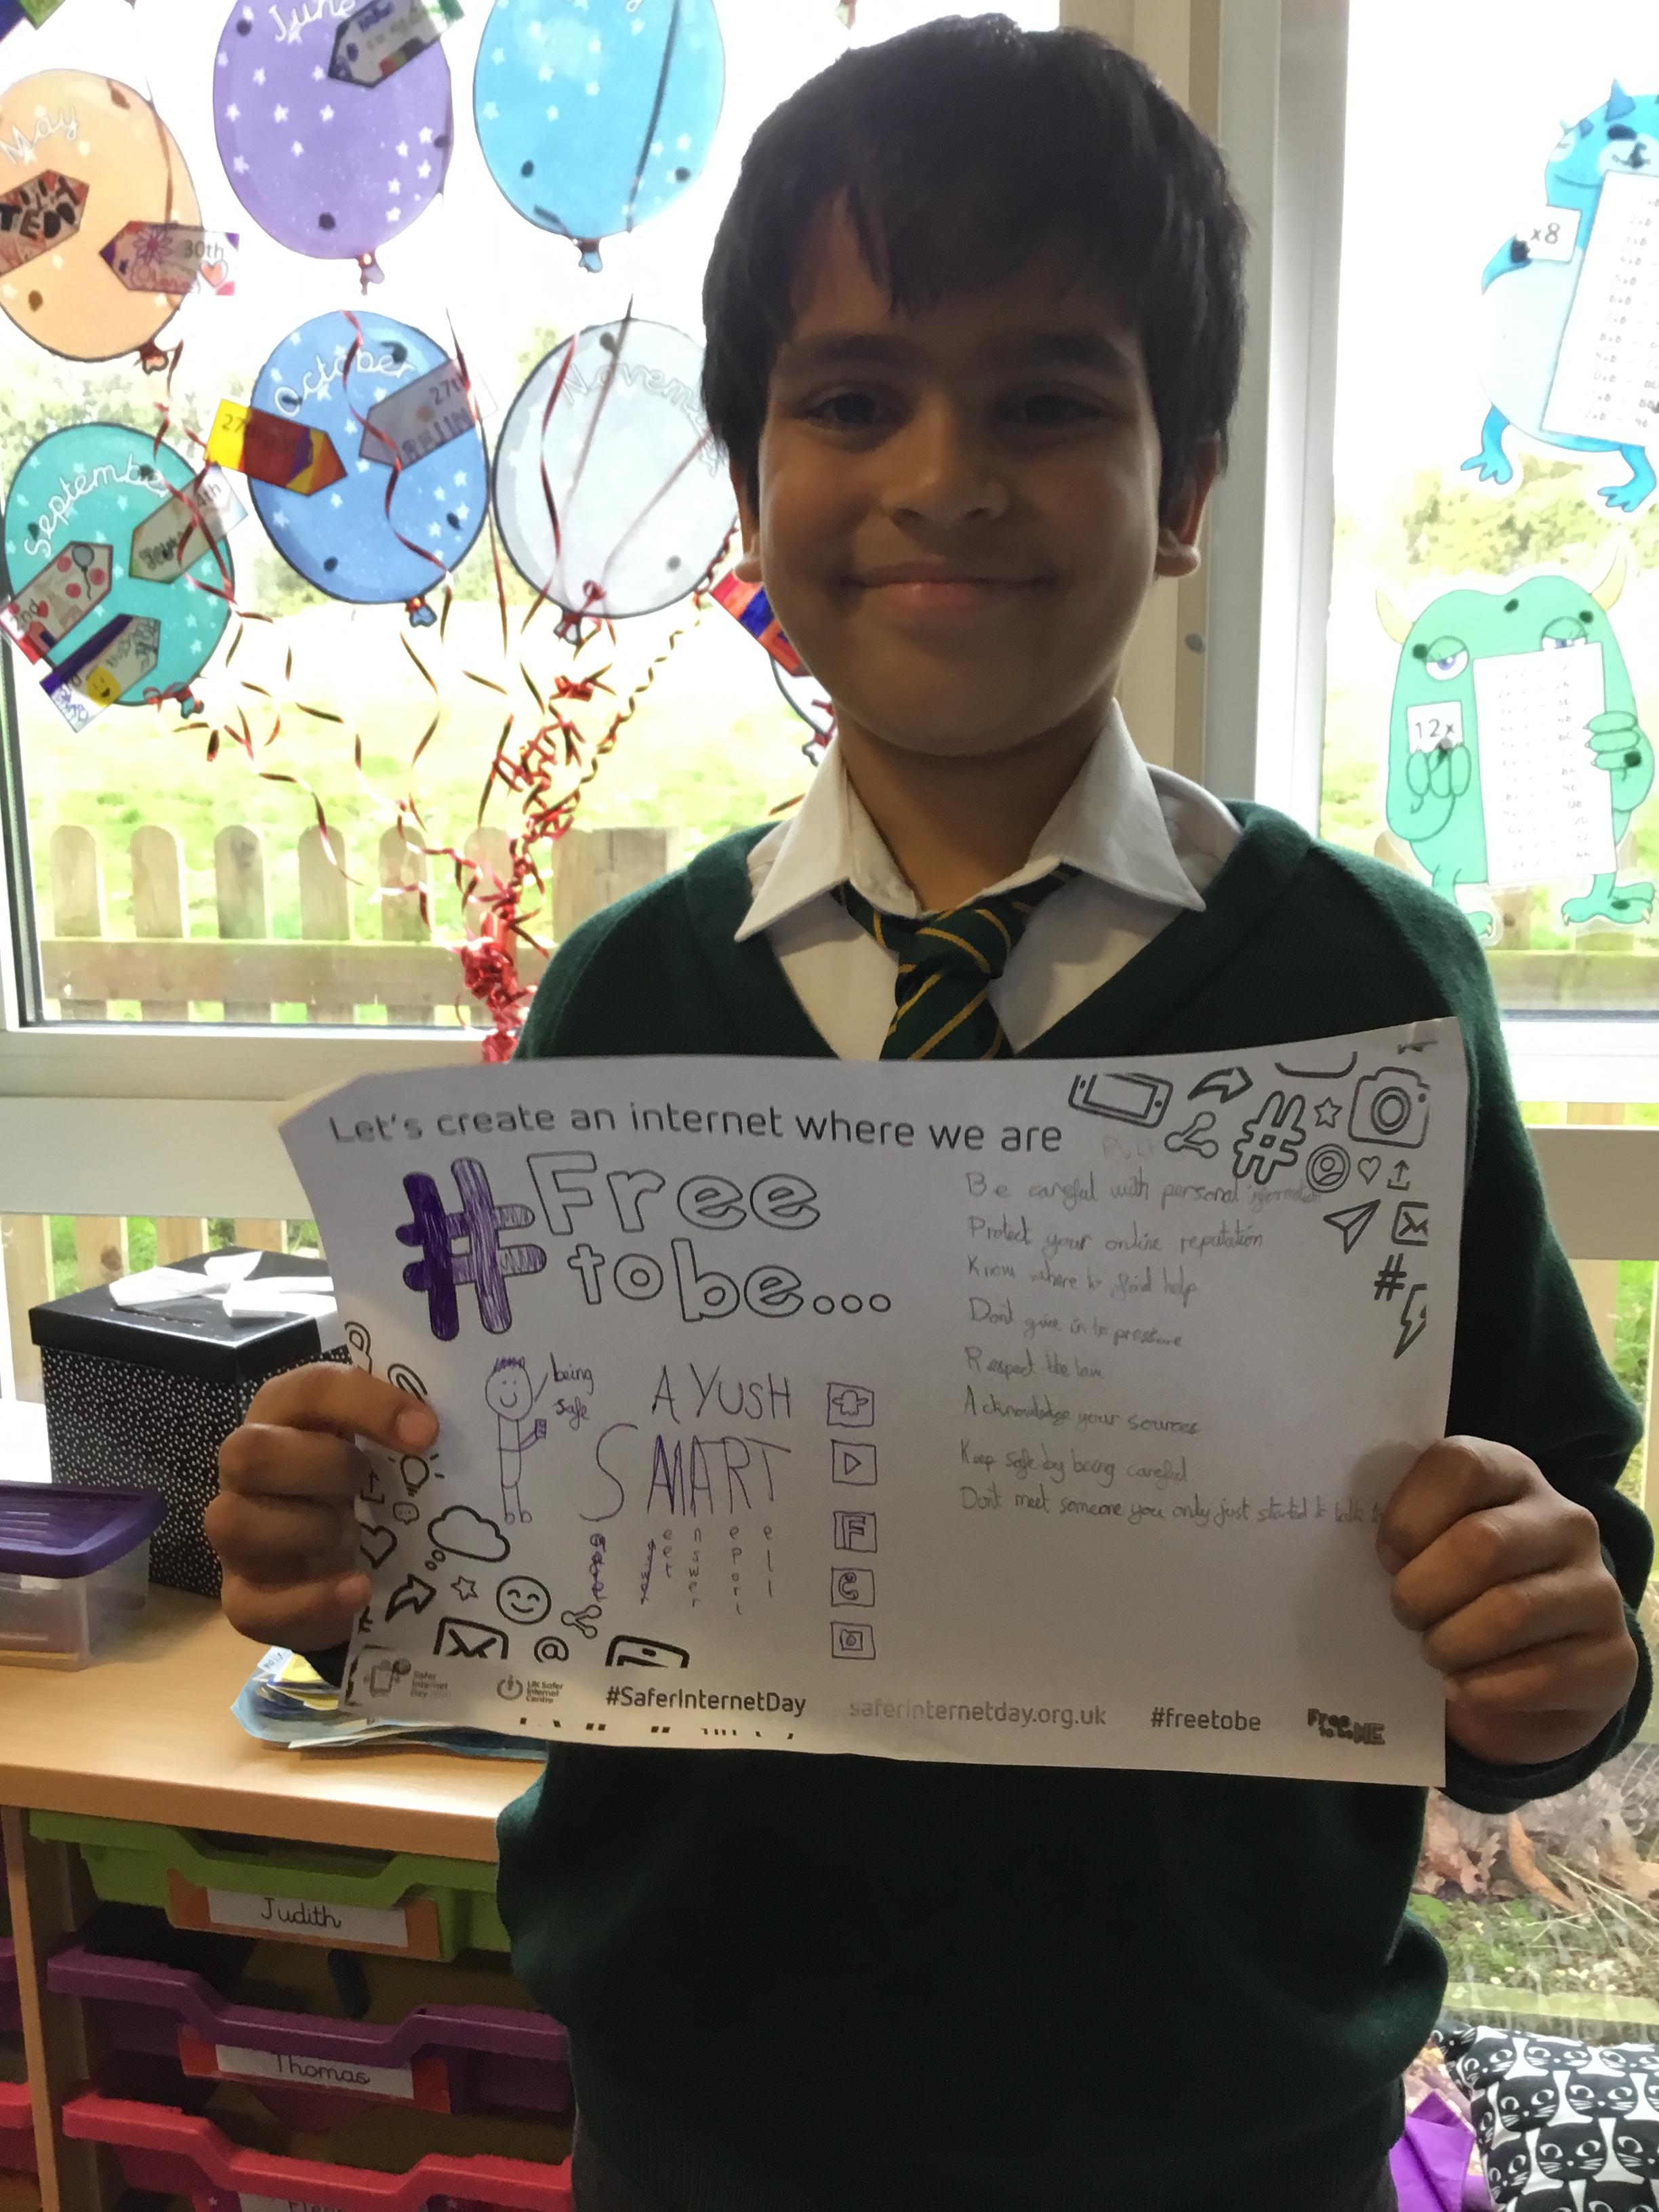 May
30th
June
27th
October
27th
September
4th
2nd
November
x8
12x
Let's create an internet where we are
#Free
to be...
being
safe
AYUSH
SMART
e n e e
e s p l
e w o l
t e r
r t
F
Be careful with personal information
Protect your online reputation
Know where to find help
Don't give in to pressure
Respect the law
Acknowledge your sources
Keep safe by being careful
Don't meet someone you only just started to talk to
@
Safer
Internet
Day
UK Safer
Internet
Centre
#SaferInternetDay
saferinternetday.org.uk
#freetobe
Free
to be ME
Judith
Thomas